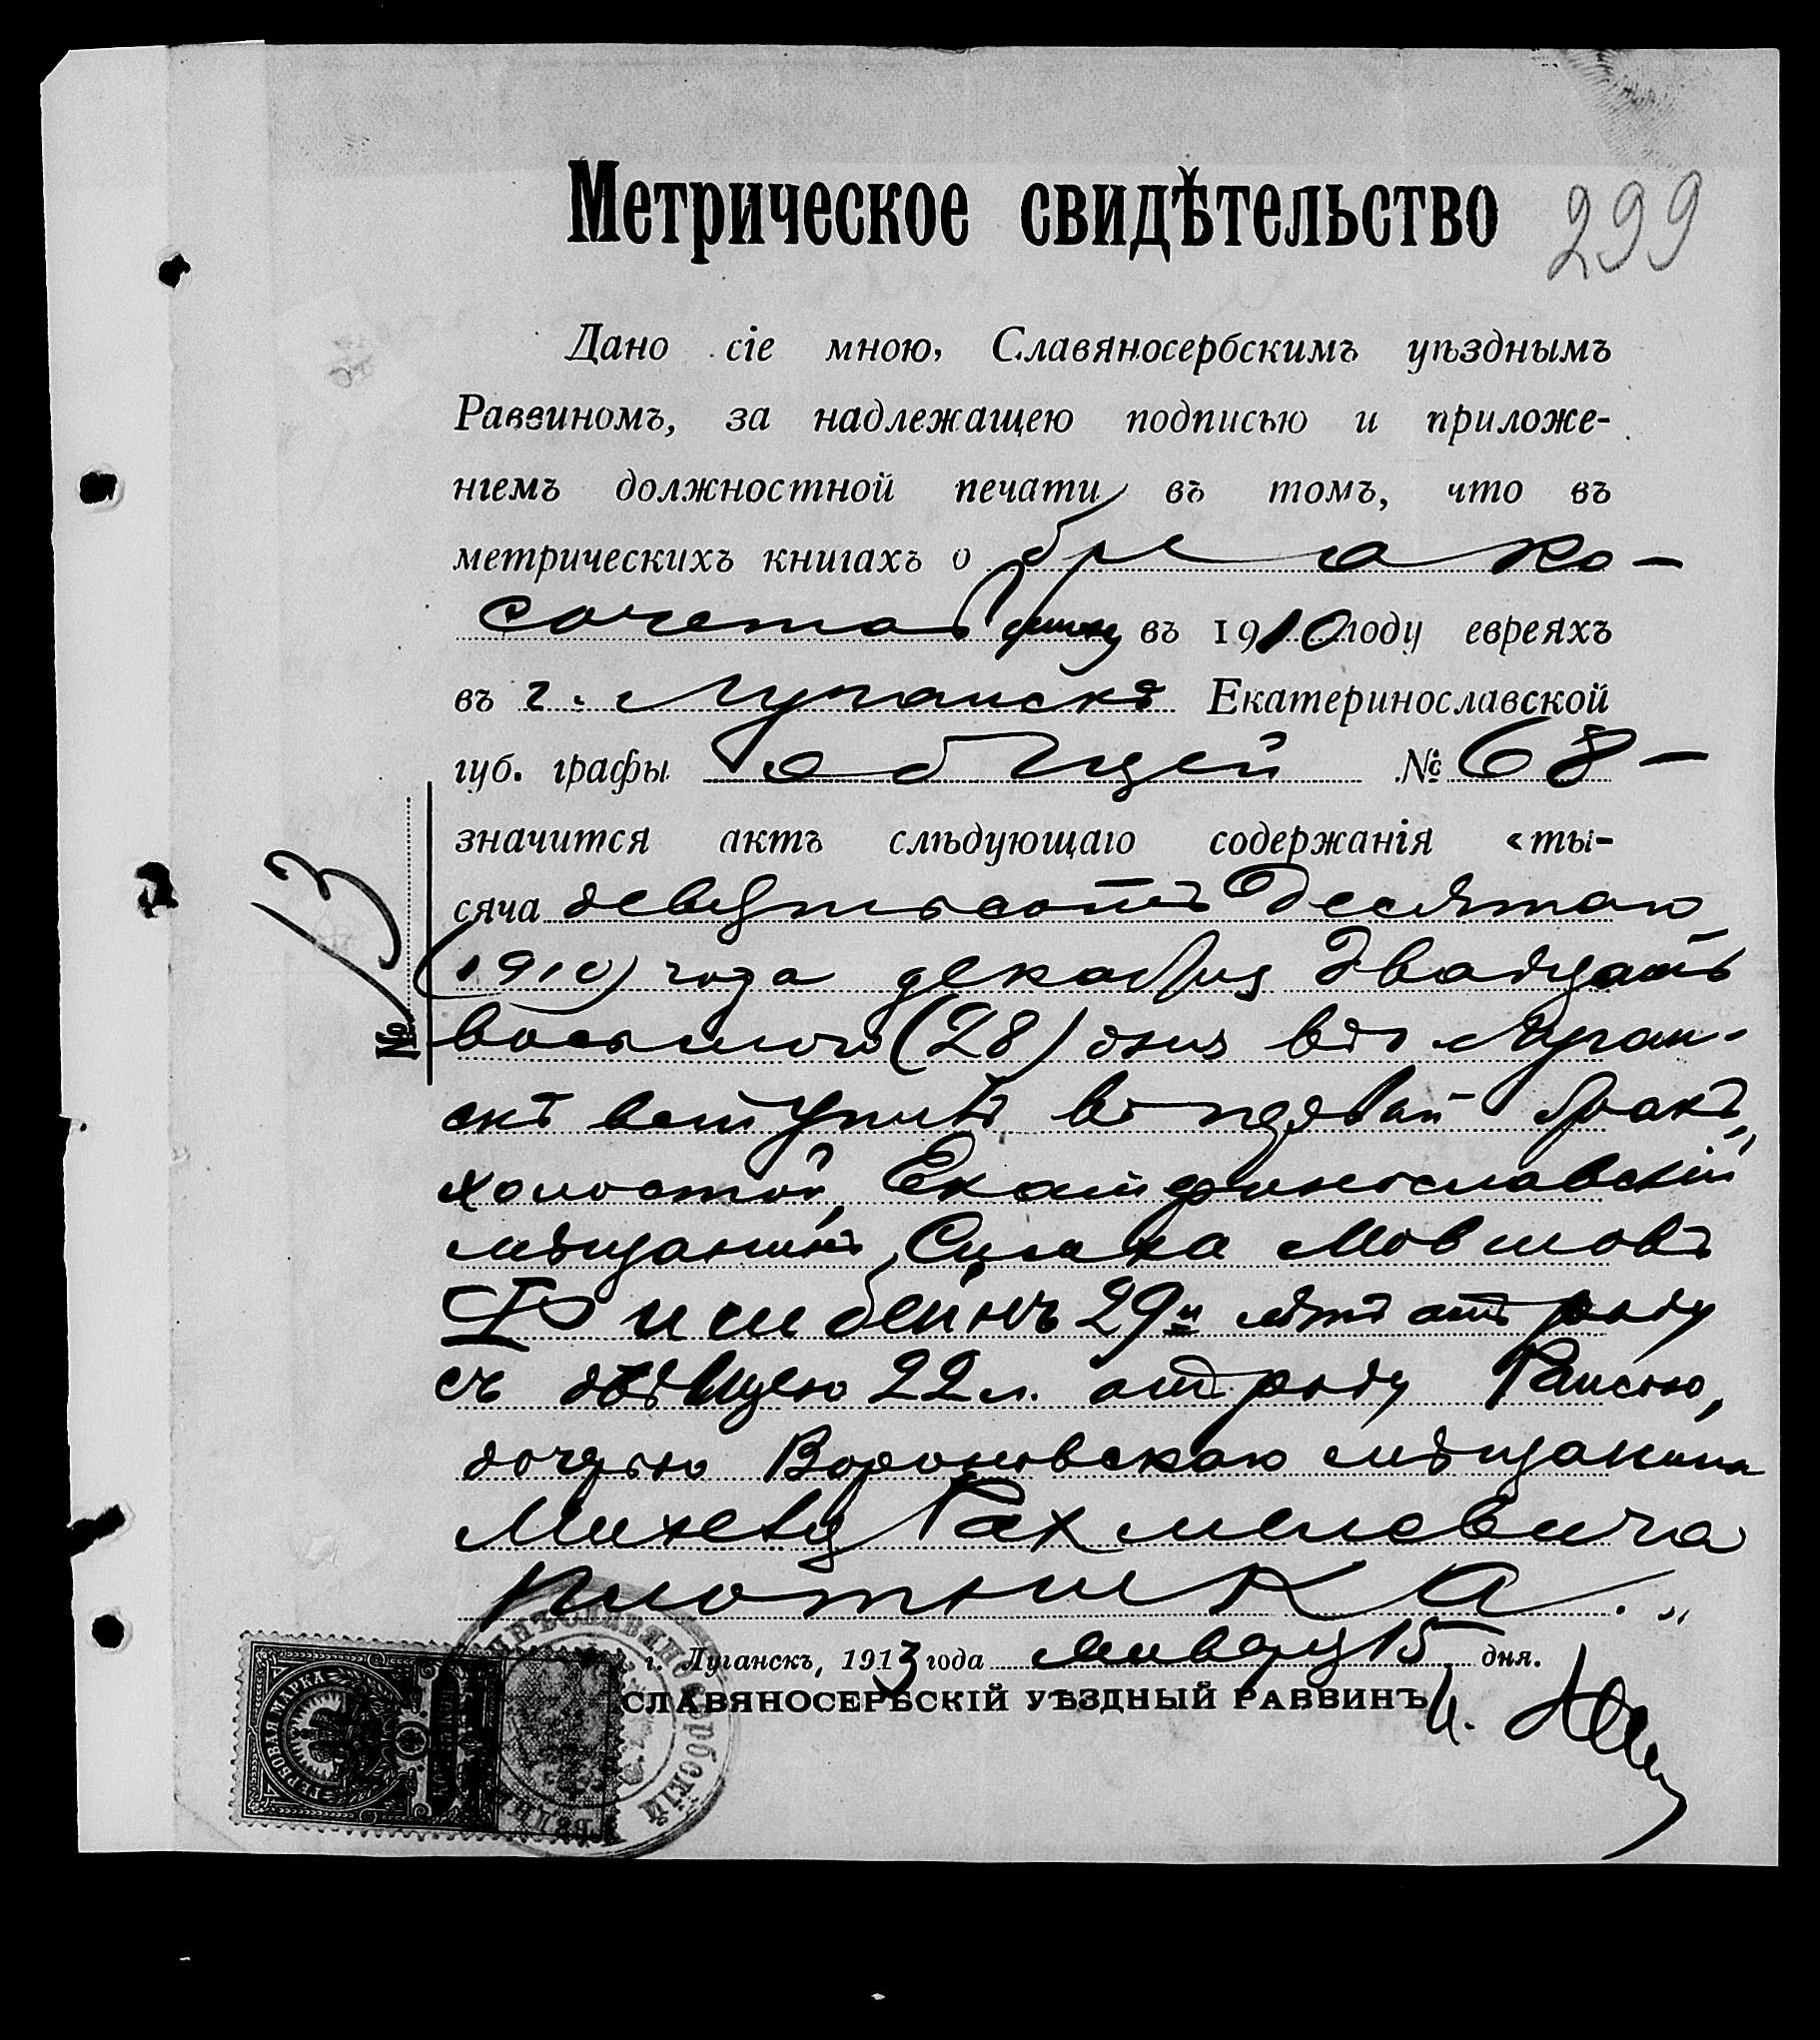 Метрическое свидѣтельство
299
Дано сіе мною, Славяносербскимъ уѣзднымъ
Раввиномъ, за надлежащею подписью и приложе-
ніемъ должностной печати въ томъ, что въ
метрическихъ книгахъ о брако-
сочетавшихся въ 1910 году евреяхъ
въ г. Луганскѣ Екатеринославской
губ. графы общей № 68 —
значится актъ слѣдующаго содержанія «ты-
сяча девятьсотъ десятаго
(1910) года декабря двадцать
восьмого (28) дня въ г. Луган-
скѣ вступилъ въ первый бракъ,
холостой, Екатеринославскій
мѣщанинъ, Симха Мовшовъ
Фишбейнъ 29и лѣтъ отъ роду
съ дѣвицею 22 л. отъ роду Раисою,
дочерью Вороновскаго мѣщанина
Михеля Рахмилевича
Плотника."
№ 13
г. Луганскъ, 1913 года Января 15 дня.
СЛАВЯНОСЕРБСКІЙ УѢЗДНЫЙ РАВВИНЪ
ГЕРБОВАЯ МАРКА